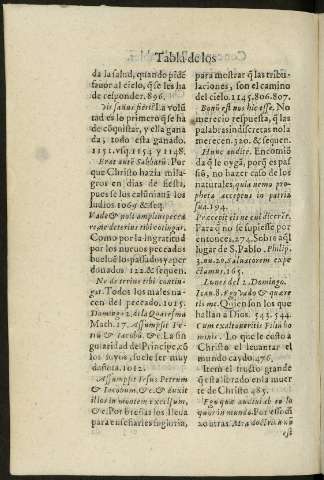 Tabla de los
da la salud, quando pidẽ
fauor al cielo, que les ha
de responder. 896.
Vis sanus fieri? La volũ
tad es lo primero que ha
de cõquistar, y ella gana
da, todo esta ganado.
1151. usq; 1154 y 1148.
Erat autẽ Sabbatũ. Por
que Christo hazia mila-
gros en dias de fiesta,
pues se los calũniauã los
Iudios 1069 & seq.
Vade & noli amplius pecca
re, ne deterius tibi cõtingat.
Como por la ingratitud
por nueuos peccados
buelue lo passado ya per
donados 122. & sequen.
Ne deterius tibi contin-
gat. Todos los males na-
cen del pecado. 1015.
Domingo 2. de la Quaresma
Math. 17. Assumpsit Pe-
trũ & Iacobũ, &c. La sin
gularidad del Principe, cõ
los suyos, suele ser muy
dañosa. 1012.
Assumpsit Iesus Petrum
& Iacobum, &c. & dux
illos in montem excelsum,
&c. Por breñas los lleua
para enseñarles su gloria,
para mostrar q̃ las tribu-
laciones, son el camino
del cielo. 1145. 806. 807.
Bonũ est nos hic esse. No
merecio respuesta, q̃ las
palabras indiscretas no la
merecen. 320. & sequen.
Hunc audite. Encomiẽ
da q̃ le oygã, porq̃ es pas
siõ, no hazer caso de los
naturales. quia nemo pro-
pheta acceptus in patria
sua. 194.
Præcepit eis ne cui dicerẽt.
Para q̃ no se supiesse por
entonces. 274. Sobre aq̃l
lugar de S. Pablo. Philip.
3. nu. 20. Saluatorem expe
ctamus. 165.
Lunes del 2. Domingo.
Ioan. 8. Ego vado & quære
tis me. Quien son los que
hallan a Dios. 543. 544.
Cum exaltaueritis Filiũ ho
minis. Lo que le costo a
Christo el leuantar el
mundo caydo, 476.
Item el trosto grande
q̃ esta librado en la muer
te de Christo 485.
20 otras
est